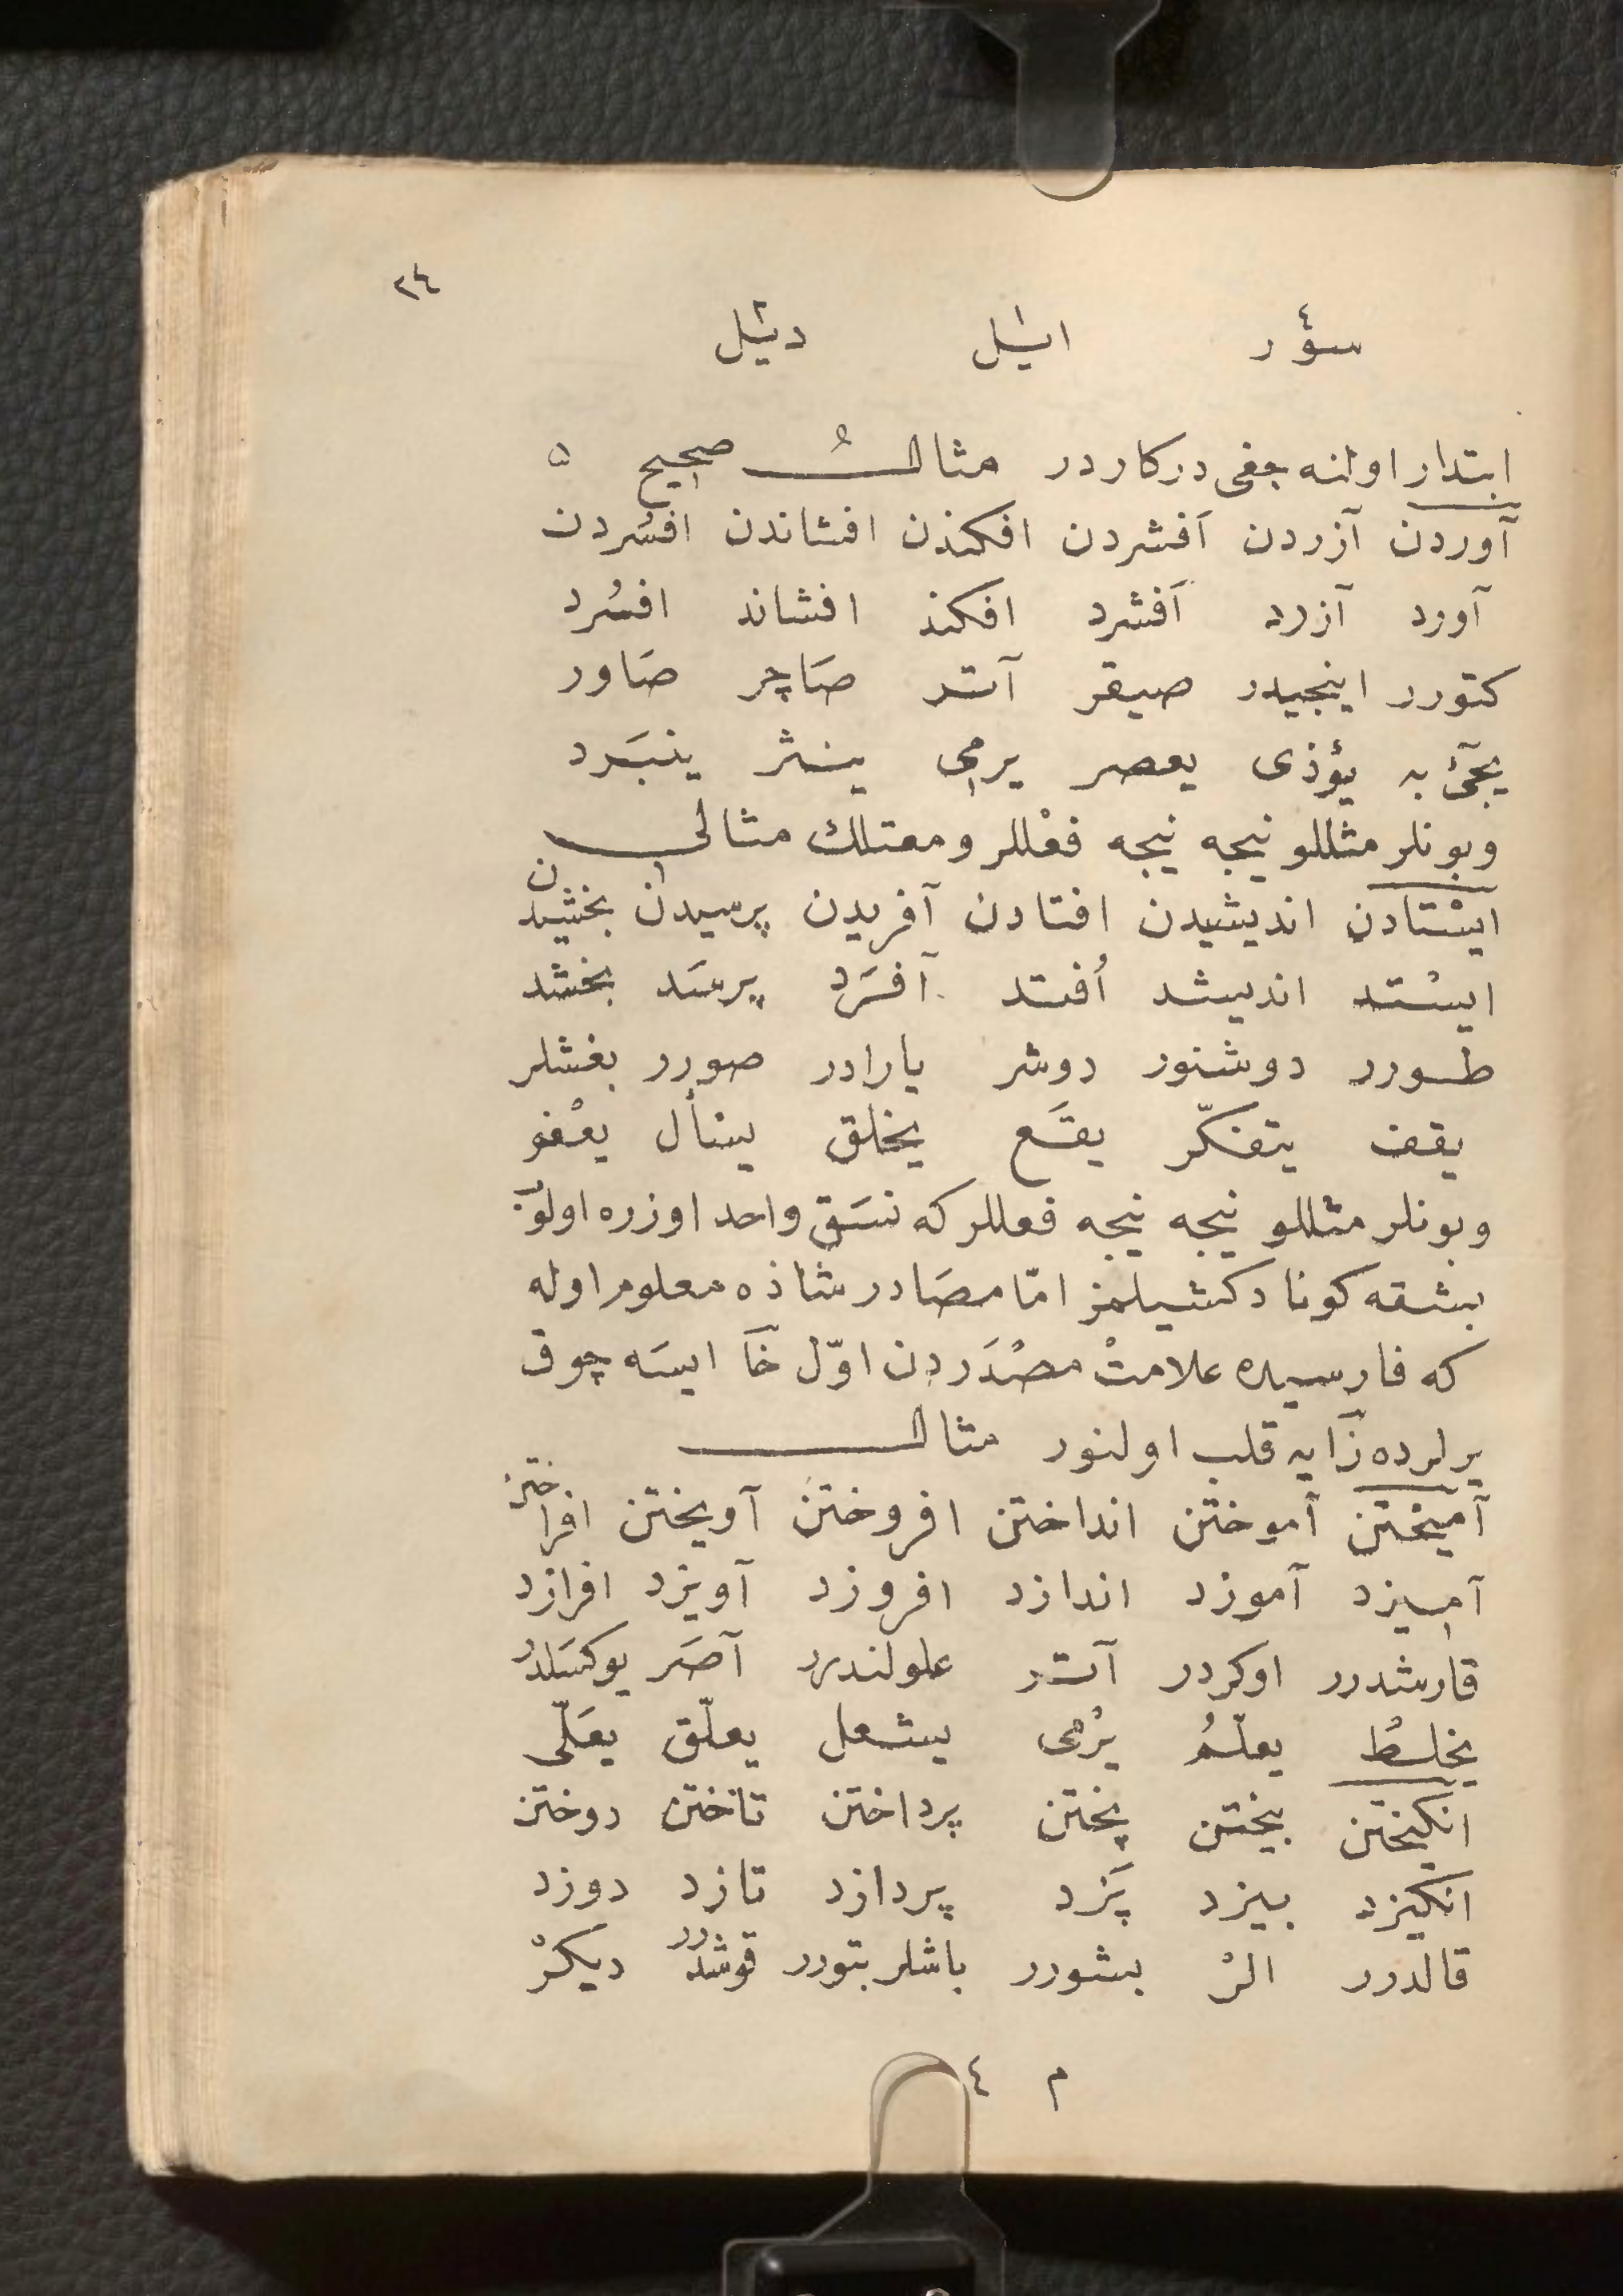 ٢٤
سؤر ايبل دييل
ابتدار اولنه جغی دركاردر مثال صحيح ٥
آوردن آزردن اَفشردن افكندن افشاندن افسُردن
آورد آزرد اَفشرد افكند افشاند افسُرد
كتورر اينجيدر صيقر آتر صَاچر صَاور
يجئ به يؤذی يعصر يرمی ينثر ينبَرد
وبونلر مثللو نيجه نيجه فعْللر ومعتلك مثالی
ايسْتادن انديشيدن افتادن آفريدن پرسيدن بخشيدن
ايسْتد انديشد اُفتد آفرَد پرسَد بخشد
طورر دوشنور دوشر يارادر صورر بغشلر
يقف يتفكّر يقَع يخلق يسأل يعْفو
وبونلر مثللو نيجه نيجه فعللر كه نسَق واحد اوزره اولوَ
بشقه كونا دكشيلمز امّا مصَادر شاذه معلوم اوله
كه فارسيده علامتْ مصْدَردن اوّل خَا ايسَه چوق
يرلرده زَايه قلب اولنور مثال
آميْختن آموختن انداختن افروختن آويختن افراختن
آميزد آموزد اندازد افروزد آويزد افرازد
قارشدرر اوكردر آتر علولندرر آصَر يوكسَلدُر
يخلطُ يعلّمُ يرْمی يشعل يعلّق يعَلّی
انكيختن بيختن پختن پرداختن تاختن دوختن
انكيزد بيزد پَزد پردازد تازد دوزد
قالدرر الرْ بشورر باشلر بتورر قوشدُرر ديكرْ
م ٤